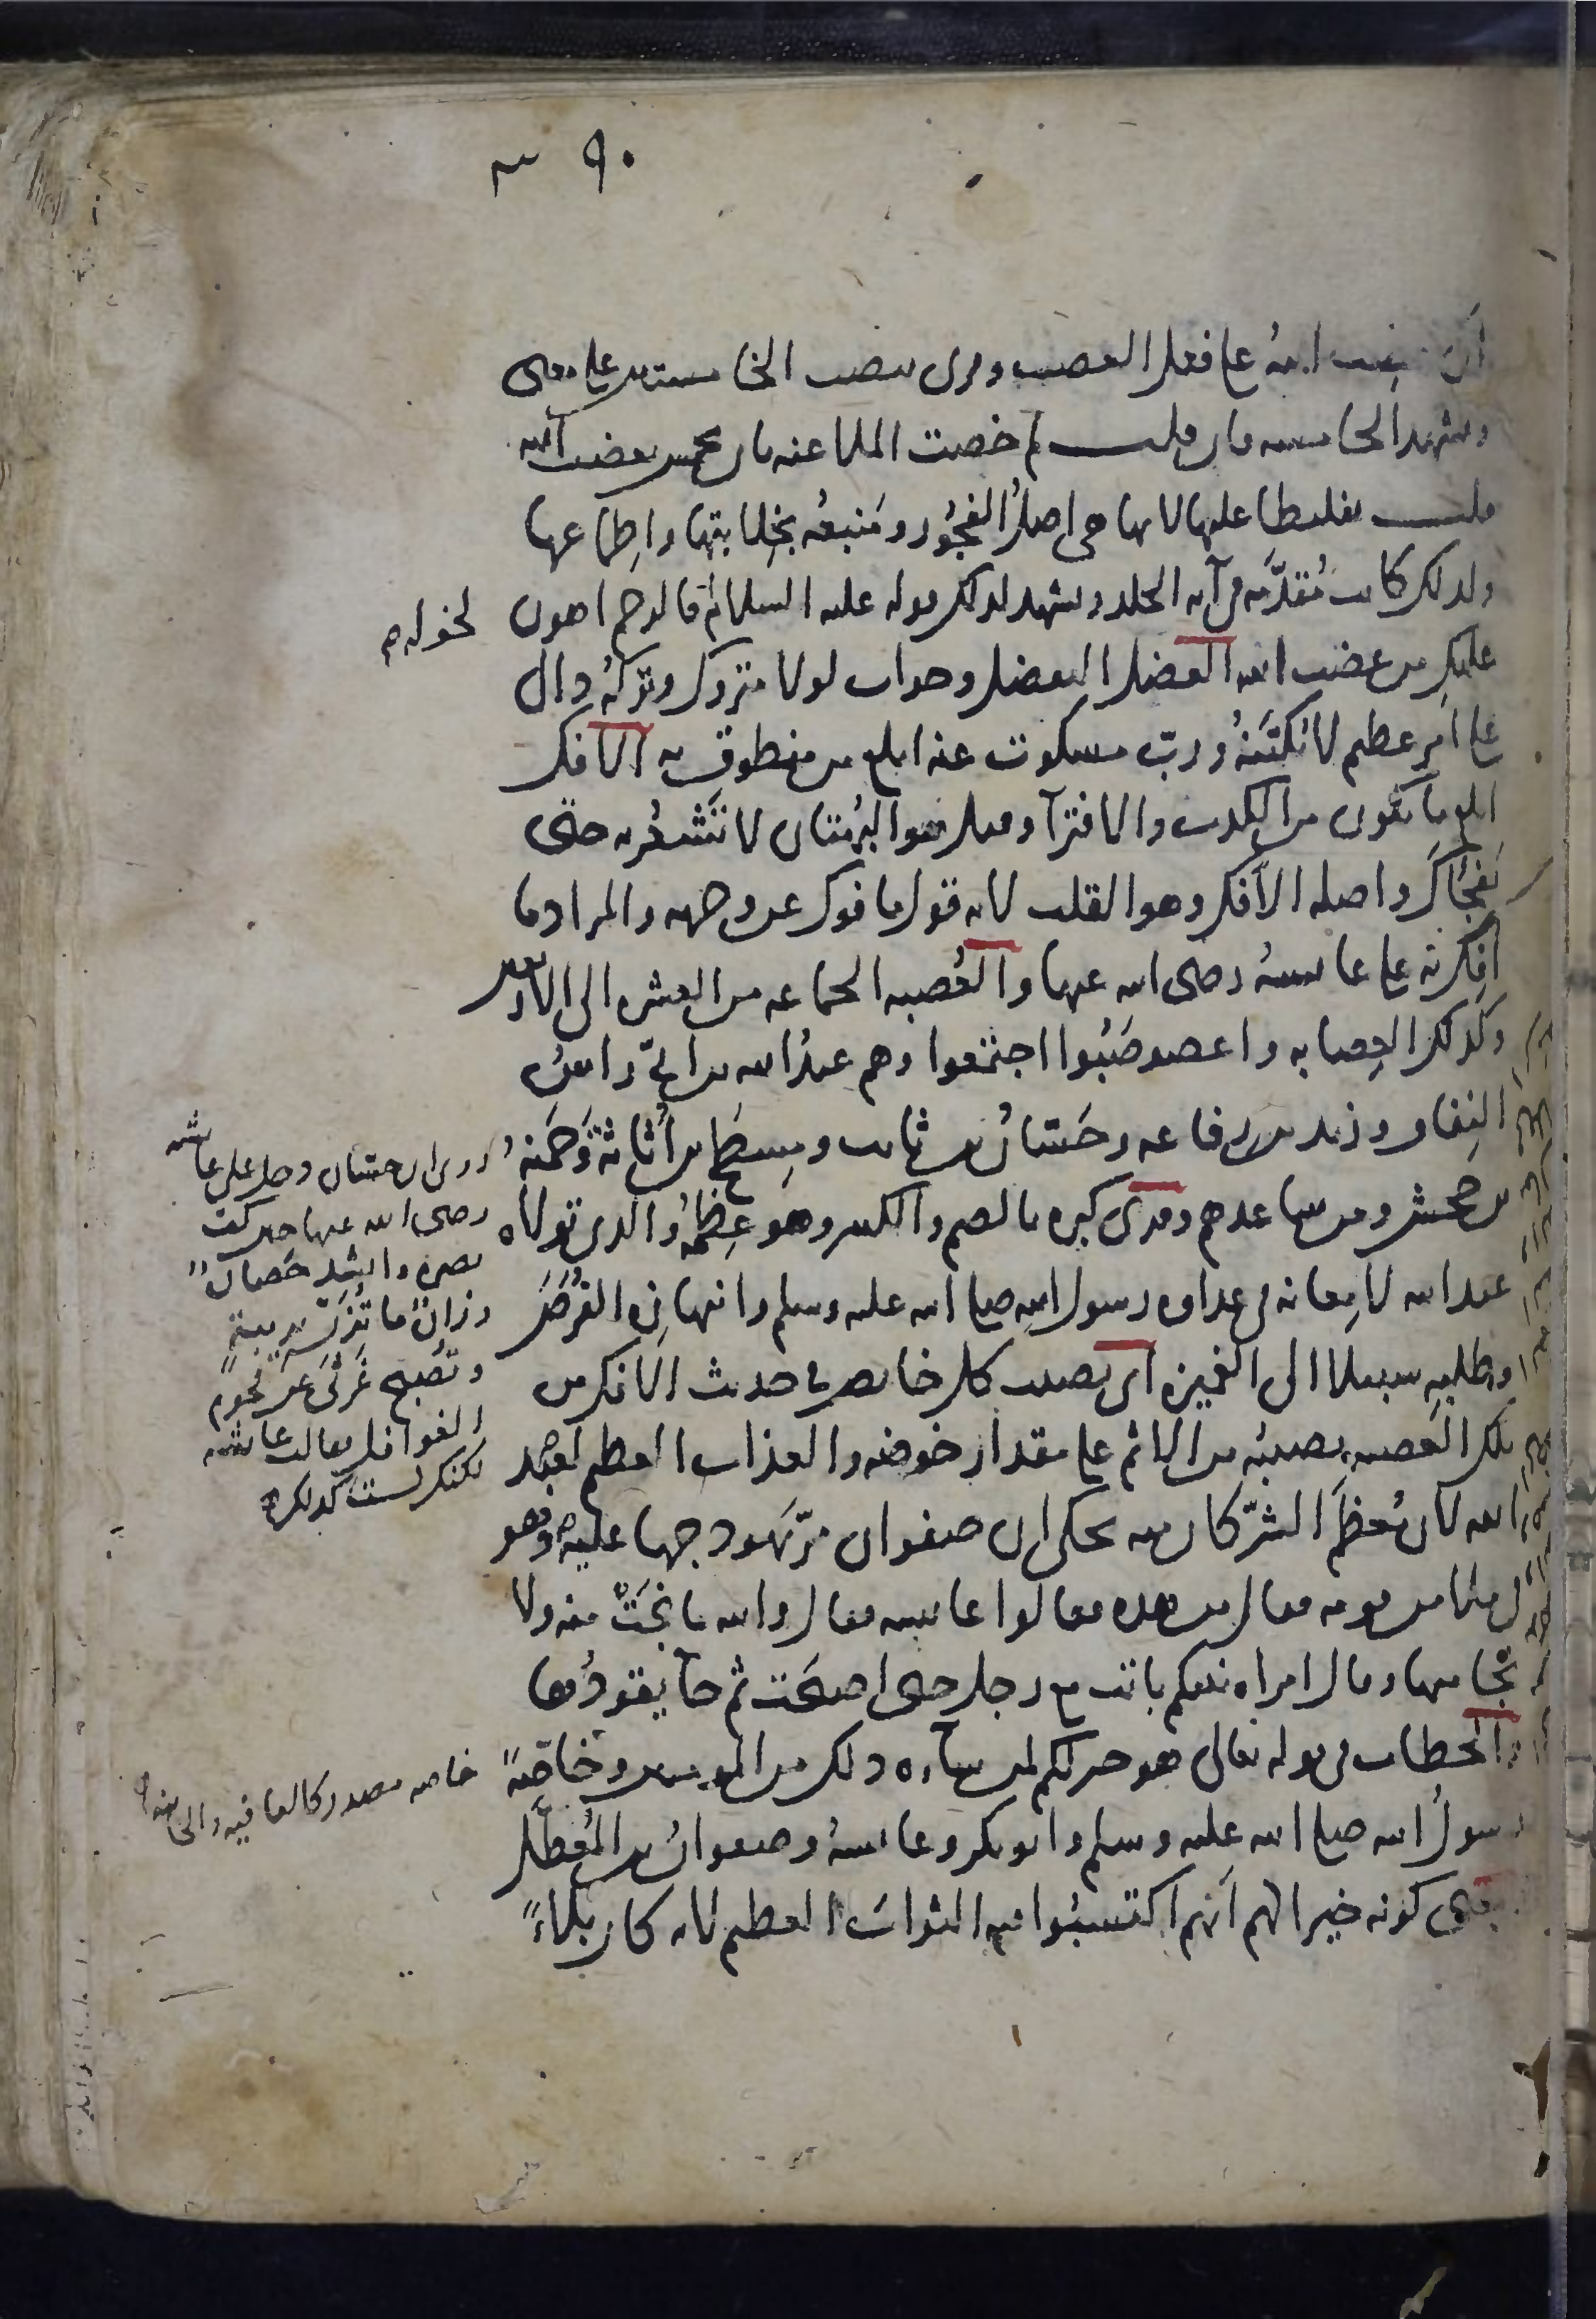 ٩٠
أن غضب الله على فعل الغضب وقرئ بنصب الخامستين على معنى
وتشهد الخامسة فان قلت لم خصت الملاعنة بان تخمس بغضب الله
قلت تغليظا عليها لانها هي اصلُ الفجُور ومَنبعُه بخِلابتها واطماعها
ولذلك كانت مُقدَّمة في آية الجلد ويشهد لذلك قوله عليه السلام فالرجم اهون
لخولة
عليك من غضب الله الفضل التفضل وجواب لولا متروك وتركه دال
على امر عظيم لا يُكتَنَهُ ورب مسكوت عنه ابلغ من منطوق به الافك
ابلغ ما يكون من الكذب والافتراء وقيل هو البهتان لا تشعُر به حتى
يفجأك واصله الأفك وهو القلب لانه قول مافوك عن وجهه والمراد ما
افك به على عائشة رضي الله عنها والعُصبة الجماعة من العشرة الى الاربعين
وكذلك العِصابة واعصوصَبُوا اجتمعوا وهم عبدُ الله بن ابيّ راسُ
النفاق وزيد بن رفاعة وحَسّانُ بن ثابت ومِسطح بن أُثاثة وحَمنة
بنت جحش ومن ساعدهم وقرئ كبره بالضم والكسر وهو عِظَمُه والذي تولاه
عبد الله لامعانه في عداوة رسول الله صلى الله عليه وسلم وانتهازه الفُرَصَ
وطلبه سبيلا الى الغميزة اي يصيب كل خائض في حديث الافك من
تلك العصبة نصيبُه من الاثم على مقدار خوضه والعذاب العظيم لعبد
الله لان مُعظَم الشرّ كان منه يحكى ان صفوان مرّ بهودجها عليه وهو
في ملأ من قومه فقال من هذه فقالوا عائشة فقال والله ما نجَتْ منه ولا
نجا منها وقال امراة نبيكم باتت مع رجل حتى اصبحَت ثم جآ يقودُها
والخطاب في قوله تعالى هو خير لكم لمن ساءه ذلك من المومنين وخاصّةً
رسولُ الله صلى الله عليه وسلم وابو بكر وعائشةُ وصفوانُ بن المُعطّل
ومعنى كونه خيرا لهم أنهم اكتسبُوا فيه الثوابَ العظيم لانه كان بلاءً
روى ان حسان دخل على عائشة
رضي الله عنها حين كف
بصره وانشد حَصانٌ
رزانٌ ما تُزَنّ بريبةٍ
وتُصبح غَرثَى عن لحوم
الغوافل فقالت عائشة
لكنك لست كذلك
خاصة مصدر كالعافية والخائنة